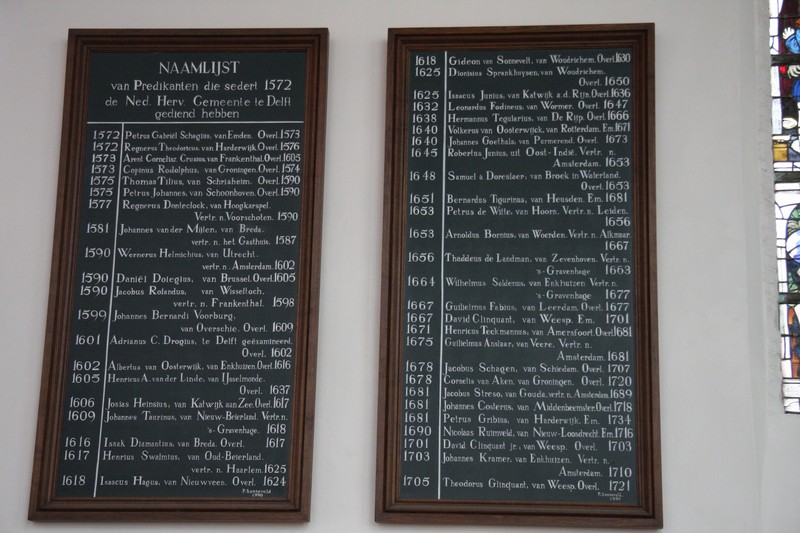 NAAMLIJST
van Predikanten die sedert 1572
de Ned. Herv. Gemeente te Delft
gediend hebben
1572 Petrus Gabriel Schagius, van Emden. Overl. 1573
1572 Regnerus Theodoricus, van Harderwijk. Overl. 1576
1573 Arent Cornelisz. Crusius, van Frankenthal. Overl. 1605
1573 Copinus Rodolphus, van Groningen. Overl. 1574
1575 Thomas Tilius, van Schriaheim. Overl. 1590
1575 Petrus Johannes, van Schoonhoven. Overl. 1590
1577 Regnerus Donteclock, van Hoogkarspel.
Vertr. n. Voorschoten. 1590
1581 Johannes van der Mijlen, van Breda.
vertr. n. het Gasthuis. 1587
1590 Wernerus Helmichius, van Utrecht.
vertr. n. Amsterdam. 1602
1590 Daniël Dolegius, van Brussel. Overl. 1605
1590 Jacobus Rolandus, van Wisselloch.
vertr. n. Frankenthal. 1598
1599 Johannes Bernardi Voorburg,
van Overschie. Overl. 1609
1601 Adrianus C. Drogius, te Delft geëxamineerd.
Overl. 1602
1602 Albertus van Oosterwijk, van Enkhuizen. Overl. 1616
1605 Henricus A. van der Linde, van IJsselmonde.
Overl. 1637
1606 Josias Heinsius, van Katwijk aan Zee. Overl. 1617
1609 Johannes Taurinus, van Nieuw-Beierland. Vertr. n.
's-Gravenhage. 1618
1616 Isaak Diamantius, van Breda. Overl. 1617
1617 Henrius Swalmius, van Oud-Beierland.
vertr. n. Haarlem. 1625
1618 Isaacus Hagus, van Nieuwveen. Overl. 1624
1990
1618 Gideon van Sonnevelt, van Woudrichem. Overl. 1630
1625 Dionisius Sprankhuysen, van Woudrichem.
Overl. 1650
1625 Isaacus Junius, van Katwijk a.d. Rijn. Overl. 1636
1632 Leonardus Fodineus, van Wormer. Overl. 1647
1638 Hermannus Tegularius, van De Rijp. Overl. 1666
1640 Volkerus van Oosterwijck, van Rotterdam. Em. 1671
1640 Johannes Goethals, van Purmerend. Overl. 1673
1645 Robertus Junius, uit Oost-Indië. Vertr. n.
Amsterdam. 1653
1648 Samuel a Doreslaer, van Broek in Waterland.
Overl. 1653
1651 Bernardus Tigurinus, van Heusden. Em. 1681
1653 Petrus de Witte, van Hoorn. Vertr. n. Leiden.
1656
1653 Arnoldus Bornius, van Woerden. Vertr. n. Alkmaar.
1667
1656 Thaddeus de Landman, van Zevenhoven. Vertr. n.
's-Gravenhage 1663
1664 Wilhelmus Seldenus, van Enkhuizen Vertr. n.
's-Gravenhage 1677
1667 Guilielmus Fabius, van Leerdam. Overl. 1677
1667 David Clinquant, van Weesp. Em. 1701
1671 Henricus Teckmannus, van Amersfoort. Overl. 1681
1675 Guilhelmus Anslaar, van Veere. Vertr. n.
Amsterdam. 1681
1678 Jacobus Schagen, van Schiedam. Overl. 1707
1678 Cornelis van Aken, van Groningen. Overl. 1720
1681 Jacobus Streso, van Gouda. vertr. n. Amsterdam. 1689
1681 Johannes Costerus, van Middenbeemster. Overl. 1718
1681 Petrus Gribius, van Harderwijk. Em. 1734
1690 Nicolaas Ruimveld, van Nieuw-Loosdrecht. Em. 1716
1701 David Clinquant jr., van Weesp. Overl. 1703
1703 Johannes Kramer, van Enkhuizen. Vertr. n.
Amsterdam. 1710
1705 Theodorus Clinquant, van Weesp. Overl. 1721
1990